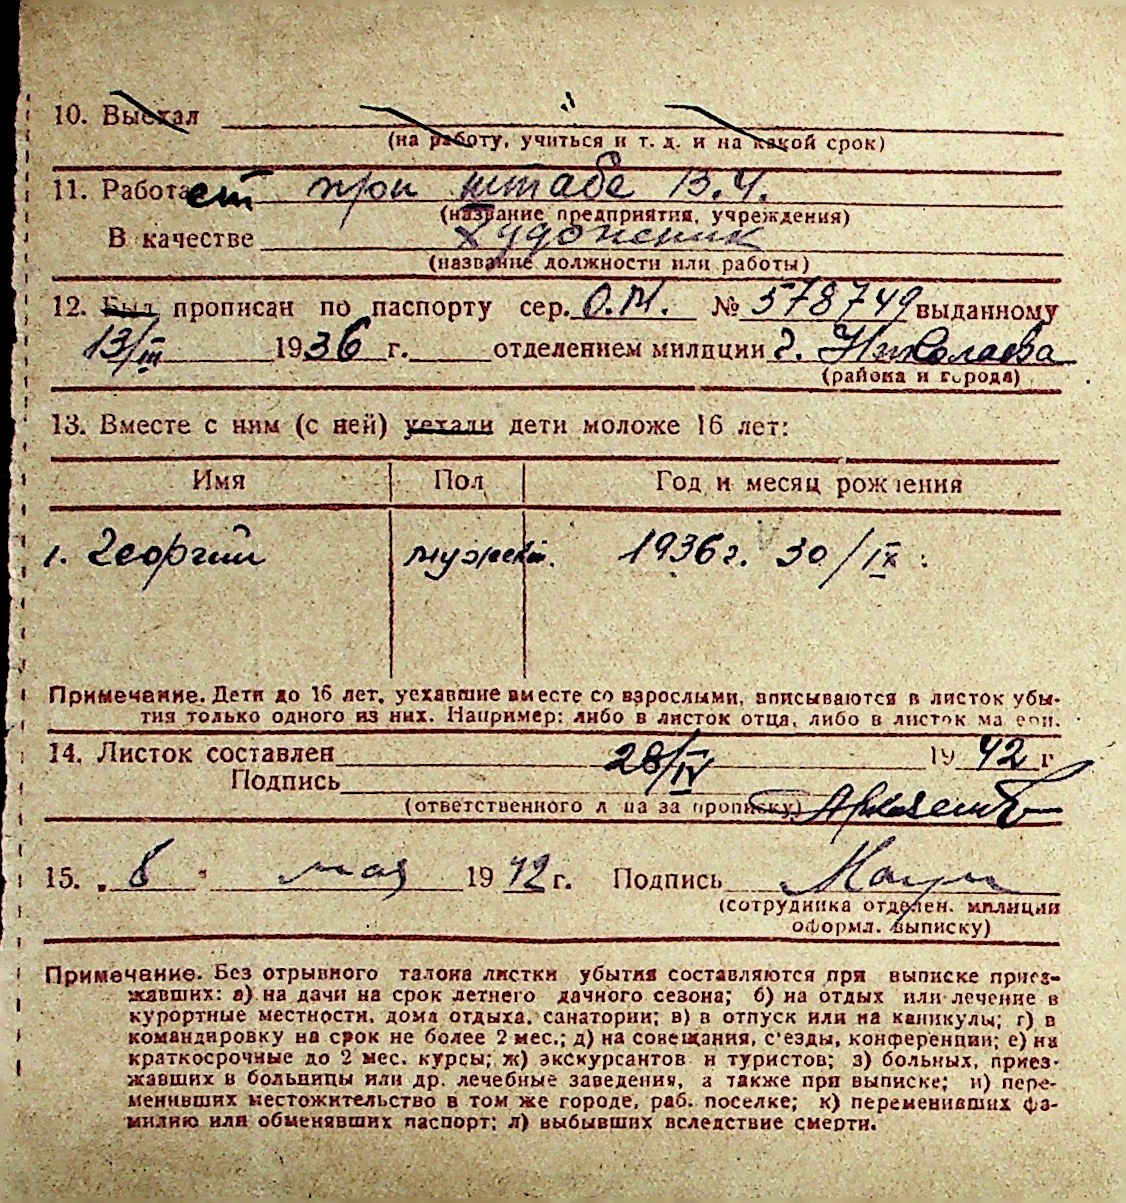 10. Выехал
(на работу, учиться и т. д. и на какой срок)
11. Работает при штабе В.Ч.
(название предприятия, учреждения)
В качестве Художник
(название должности или работы)
12. Был прописан по паспорту сер. О.М. № 578749 выданному
13/III 1936 г. отделением милиции г. Николаева
(района и города)
13. Вместе с ним (с ней) уехали дети моложе 16 лет:
Имя Пол Год и месяц рождения
1. Георгий мужской. 1936 г. 30/IX.
Примечание. Дети до 16 лет, уехавшие вместе со взрослыми, вписываются в листок убы-
тия только одного из них. Например: либо в листок отца, либо в листок матери.
14. Листок составлен 28/IV 1942 г
Подпись
(ответственного лица за прописку)
15. „8" мая 1942 г. Подпись
(сотрудника отделен. милиции
оформл. выписку)
Примечание. Без отрывного талона листки убытия составляются при выписке приез-
жавших: а) на дачи на срок летнего дачного сезона; б) на отдых или лечение в
курортные местности, дома отдыха, санатории; в) в отпуск или на каникулы; г) в
командировку на срок не более 2 мес.; д) на совещания, с'езды, конференции; е) на
краткосрочные до 2 мес. курсы; ж) экскурсантов и туристов; з) больных, приез-
жавших в больницы или др. лечебные заведения, а также при выписке; и) пере-
менивших местожительство в том же городе, раб. поселке; к) переменивших фа-
милию или обменявших паспорт; л) выбывших вследствие смерти.